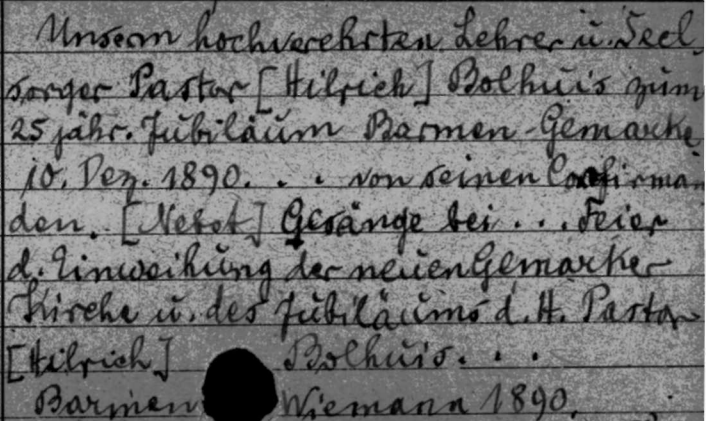 Unserm hochverehrten Lehrer u. Seel
sorger Pastor [Hilrich] Bolhuis zum
25 jähr. Jubiläum Barmen-Gemarke
10. Dez. 1890. . . von seinen Confirman
den. [Nebst] Gesänge bei . . . Feier
d. Einweihung der neuen Gemarker
Kirche u. des Jubiläums d. H. Pastor
[Hilrich] Bolhuis. . .
Barmen Wiemann 1890.